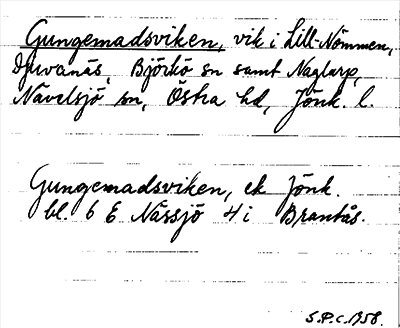 Gungemadsviken, vik i Lill-Nömmen,
Djuvanäs, Björkö sn samt Naglarp,
Nävelsjö sn, Östra hd, Jönk. l.
Gungemadsviken, ek Jönk.
bl. 6 E Nässjö 4 i Brantås.
S.P.c.1958.